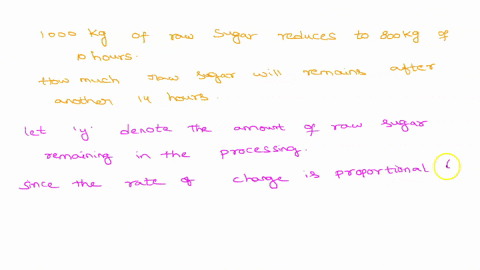 1000 kg of raw sugar reduces to 800kg of
10 hours.
How much raw sugar will remains after
another 14 hours.
let 'y' denote the amount of raw sugar
remaining in the processing.
since the rate of change is proportional